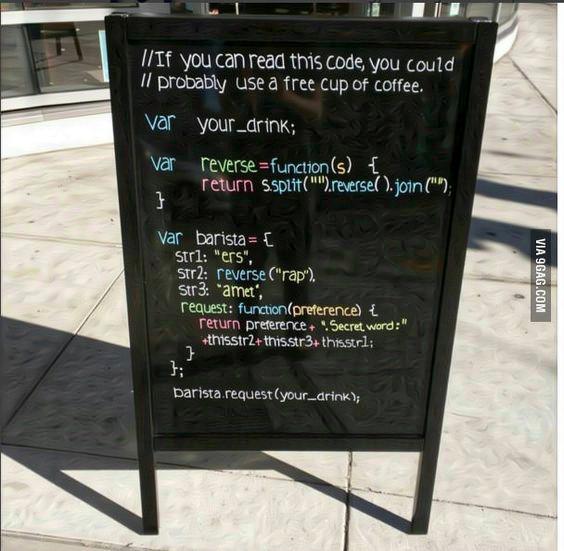 //If you can read this code, you could
// probably use a free cup of coffee.
var your_drink;
var reverse=function(s) {
return s.split("").reverse().join("");
}
var barista= {
str1: "ers",
str2: reverse("rap"),
str3: "amet",
request: function(preference) {
return preference+ ".Secret word:"
+this.str2+this.str3+this.str1;
}
};
barista.request(your_drink);
VIA 9GAG.COM